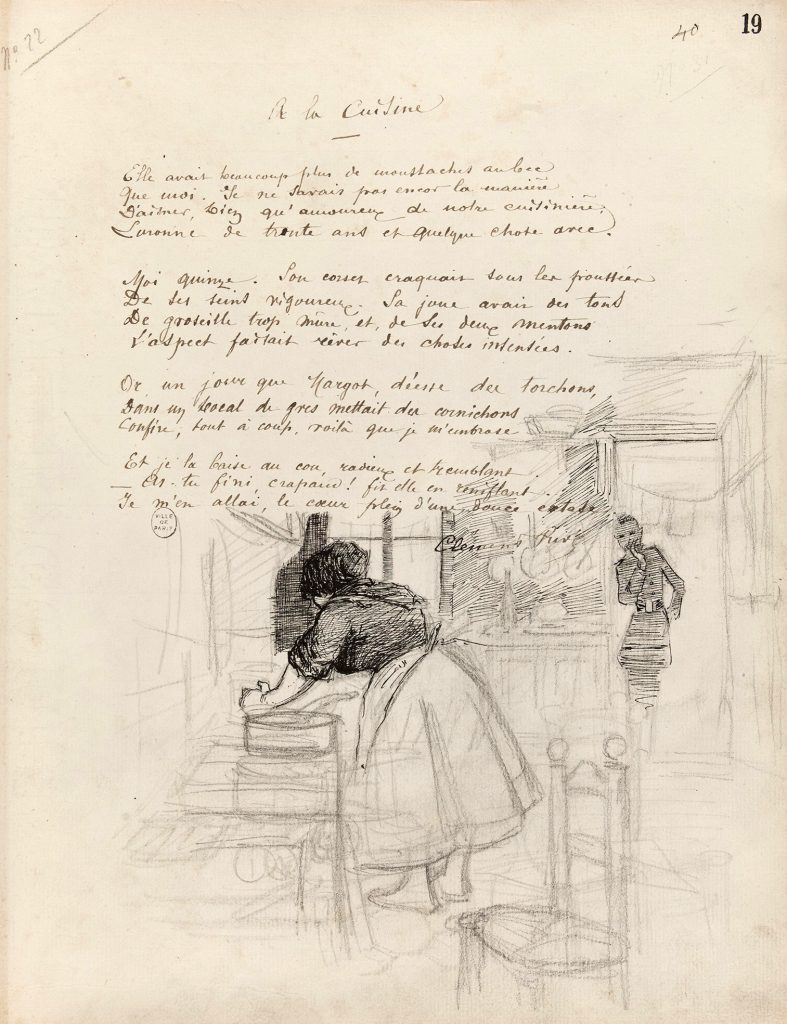 19
40
No 22
A la Cuisine
Elle avait beaucoup plus de moustaches au bec
Que moi. Je ne savais pas encor la manière
D'aimer, bien qu'amoureux de notre cuisinière,
Luronne de trente ans et quelque chose avec.
Moi quinze. Son corset craquait sous les poussées
De ses seins vigoureux. Sa joue avait des tons
De groseille trop mûre, et, de ses deux mentons
L'aspect faisait rêver des choses insensées.
Or un jour que Margot, déesse des torchons,
Dans un bocal de grès mettait des cornichons
Confire, tout à coup, voilà que je m'embrase
Et je la baise au cou, radieux et tremblant.
— As-tu fini crapaud! fit elle en renifflant.
Je m'en allai, le cœur plein d'une douce extase
Clément Privé
VILLE
DE
PARIS